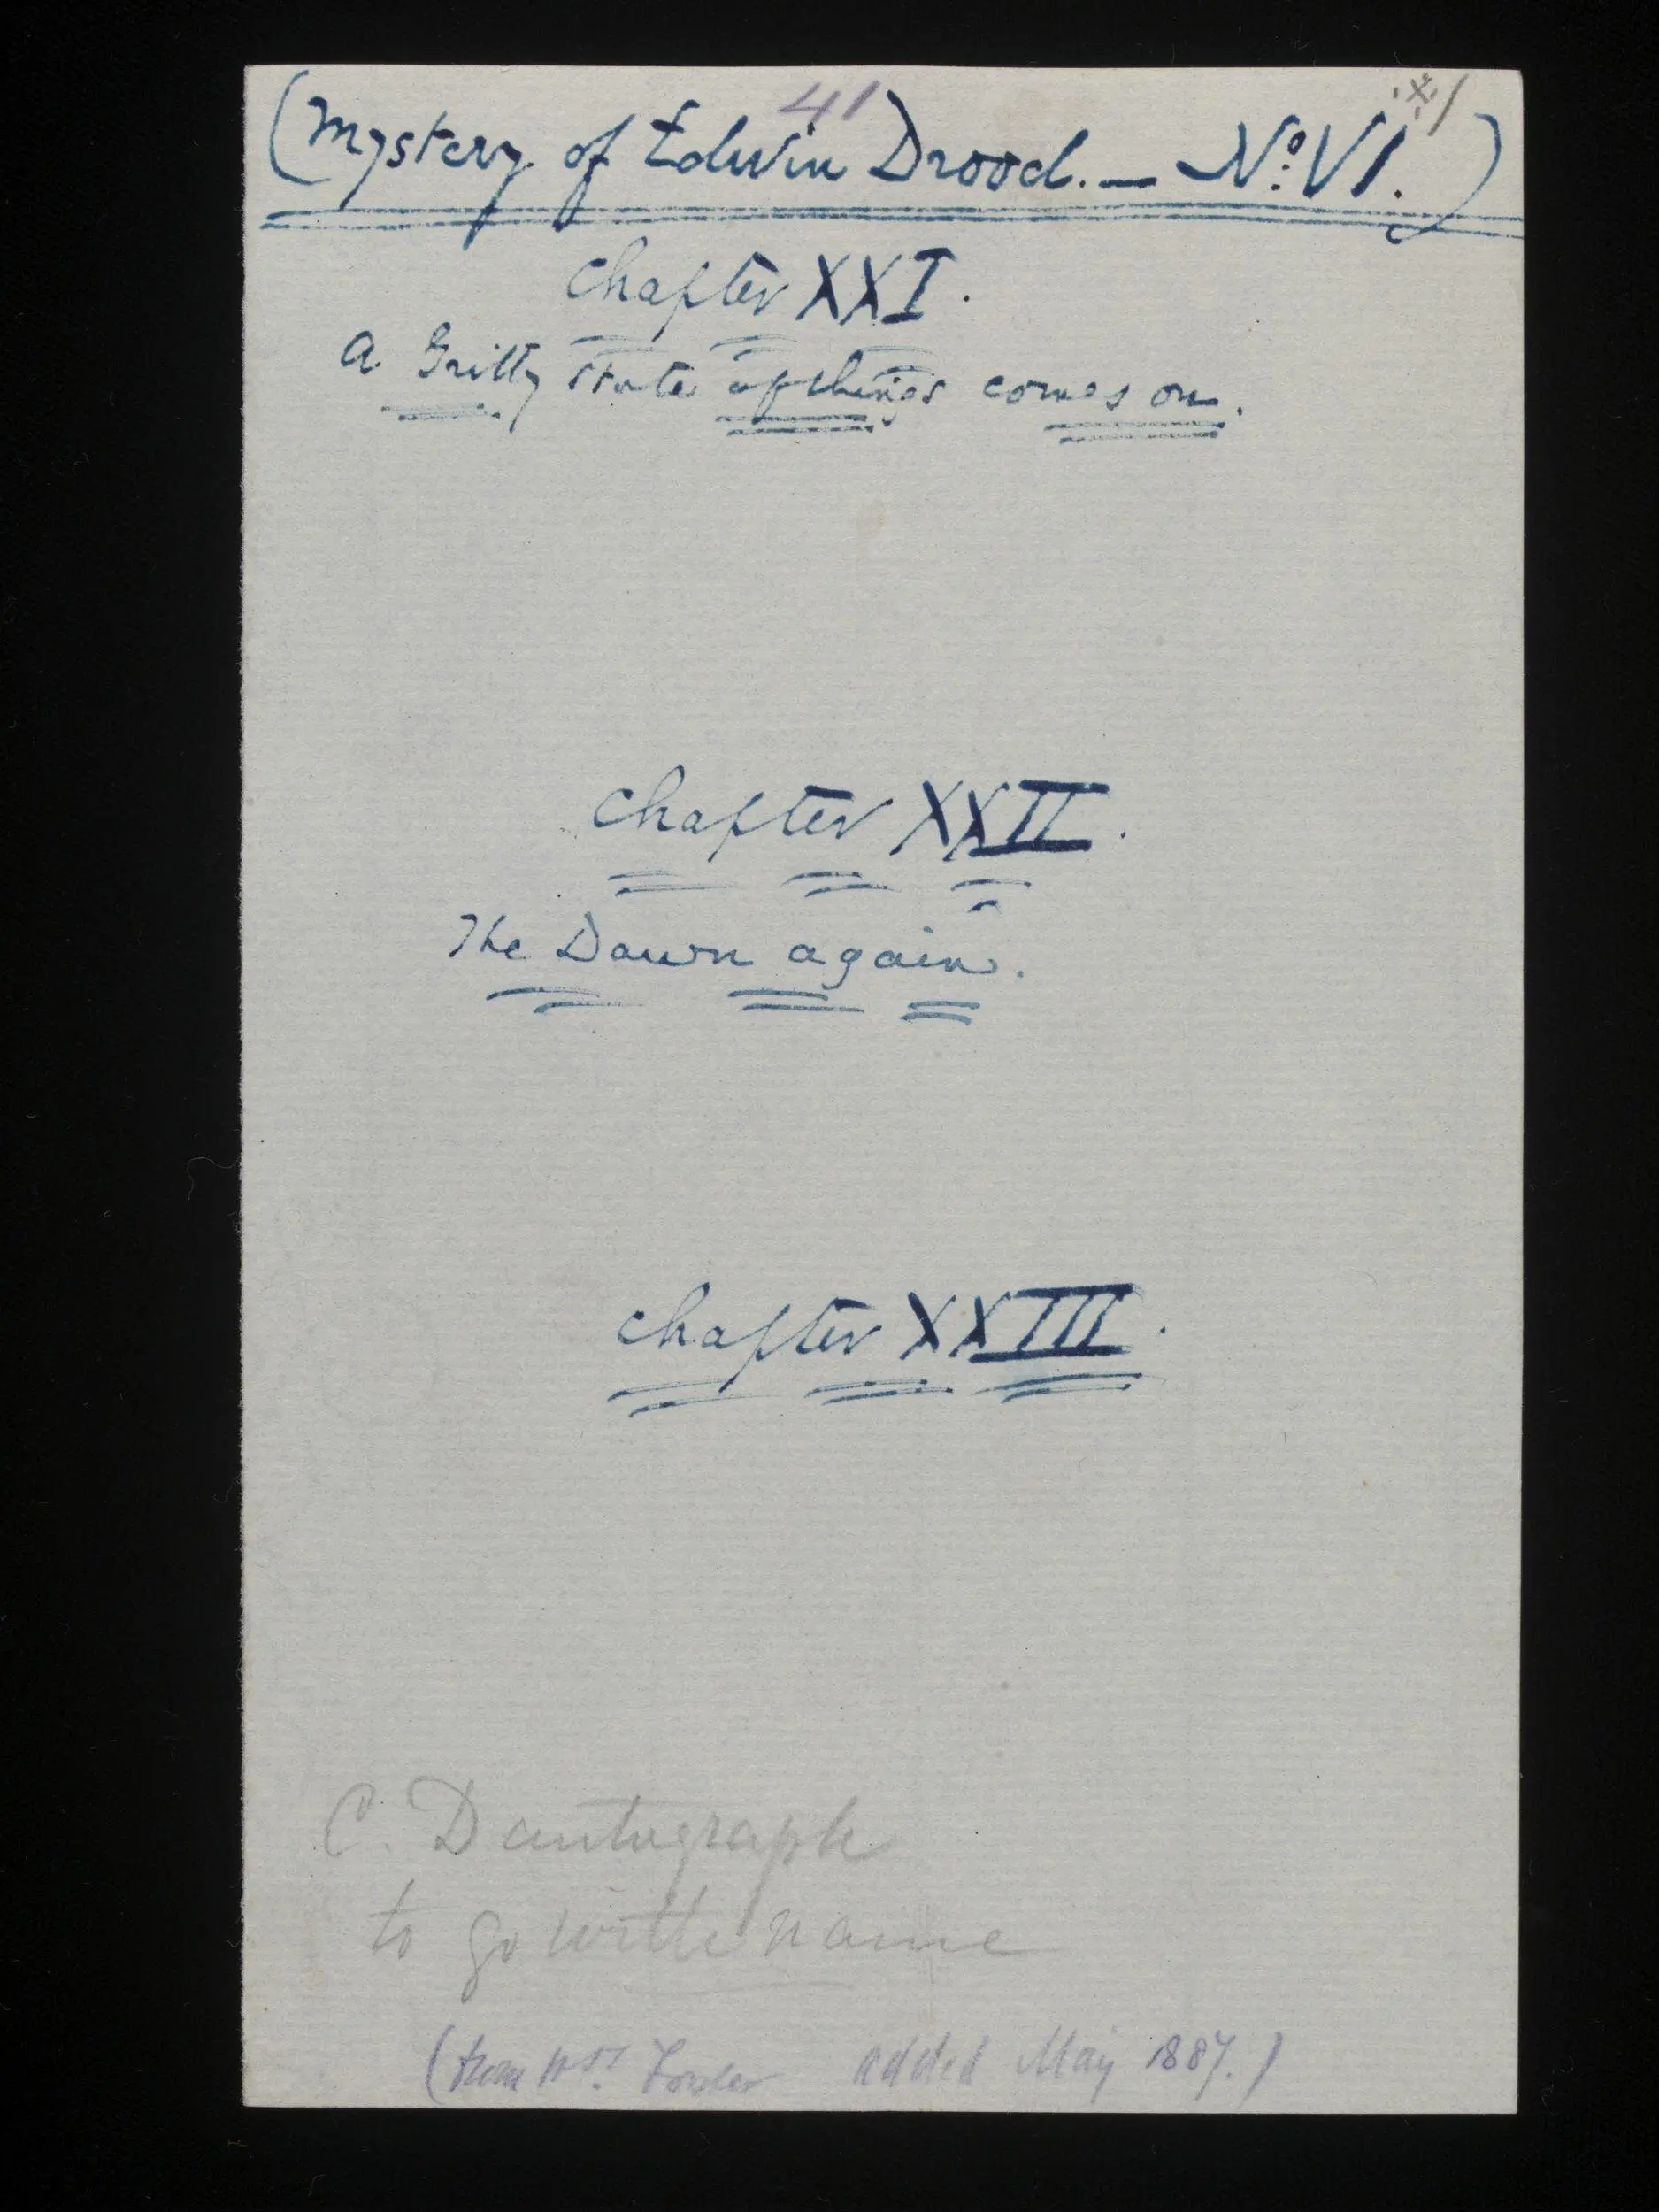 41
(Mystery of Edwin Drood. — No. VI.)
Chapter XXI.
A Gritty state of things comes on.
Chapter XXII.
The Dawn again.
Chapter XXIII.
C. D autograph
to go with name
(from Mrs. added May 1887.)